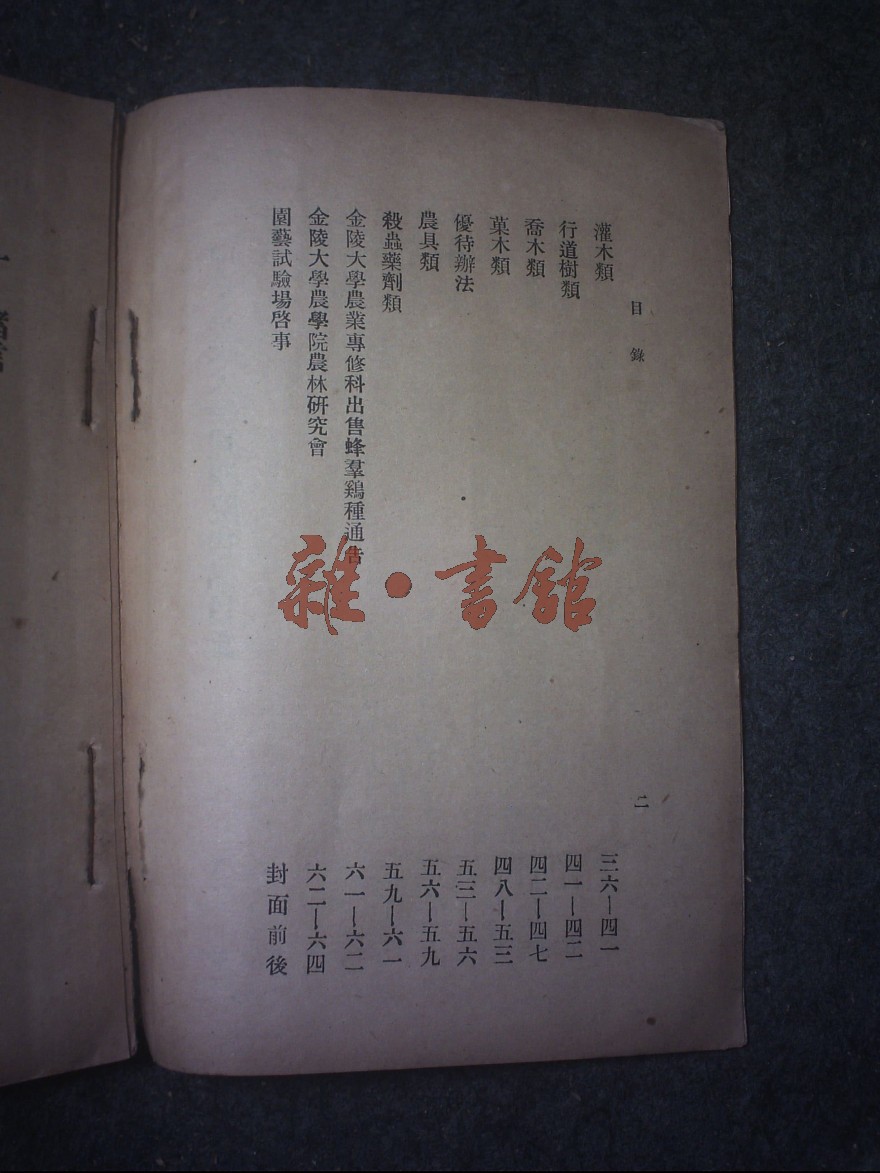 目錄
二
灌木類 三六—四一
行道樹類 四一—四二
喬木類 四二—四七
菓木類 四八—五三
優待辦法 五三—五六
農具類 五六—五九
殺蟲藥劑類 五九—六一
金陵大學農業專修科出售蜂羣鷄種通告 六一—六二
金陵大學農學院農林研究會 六二—六四
園藝試驗場啓事 封面前後
雜·書館